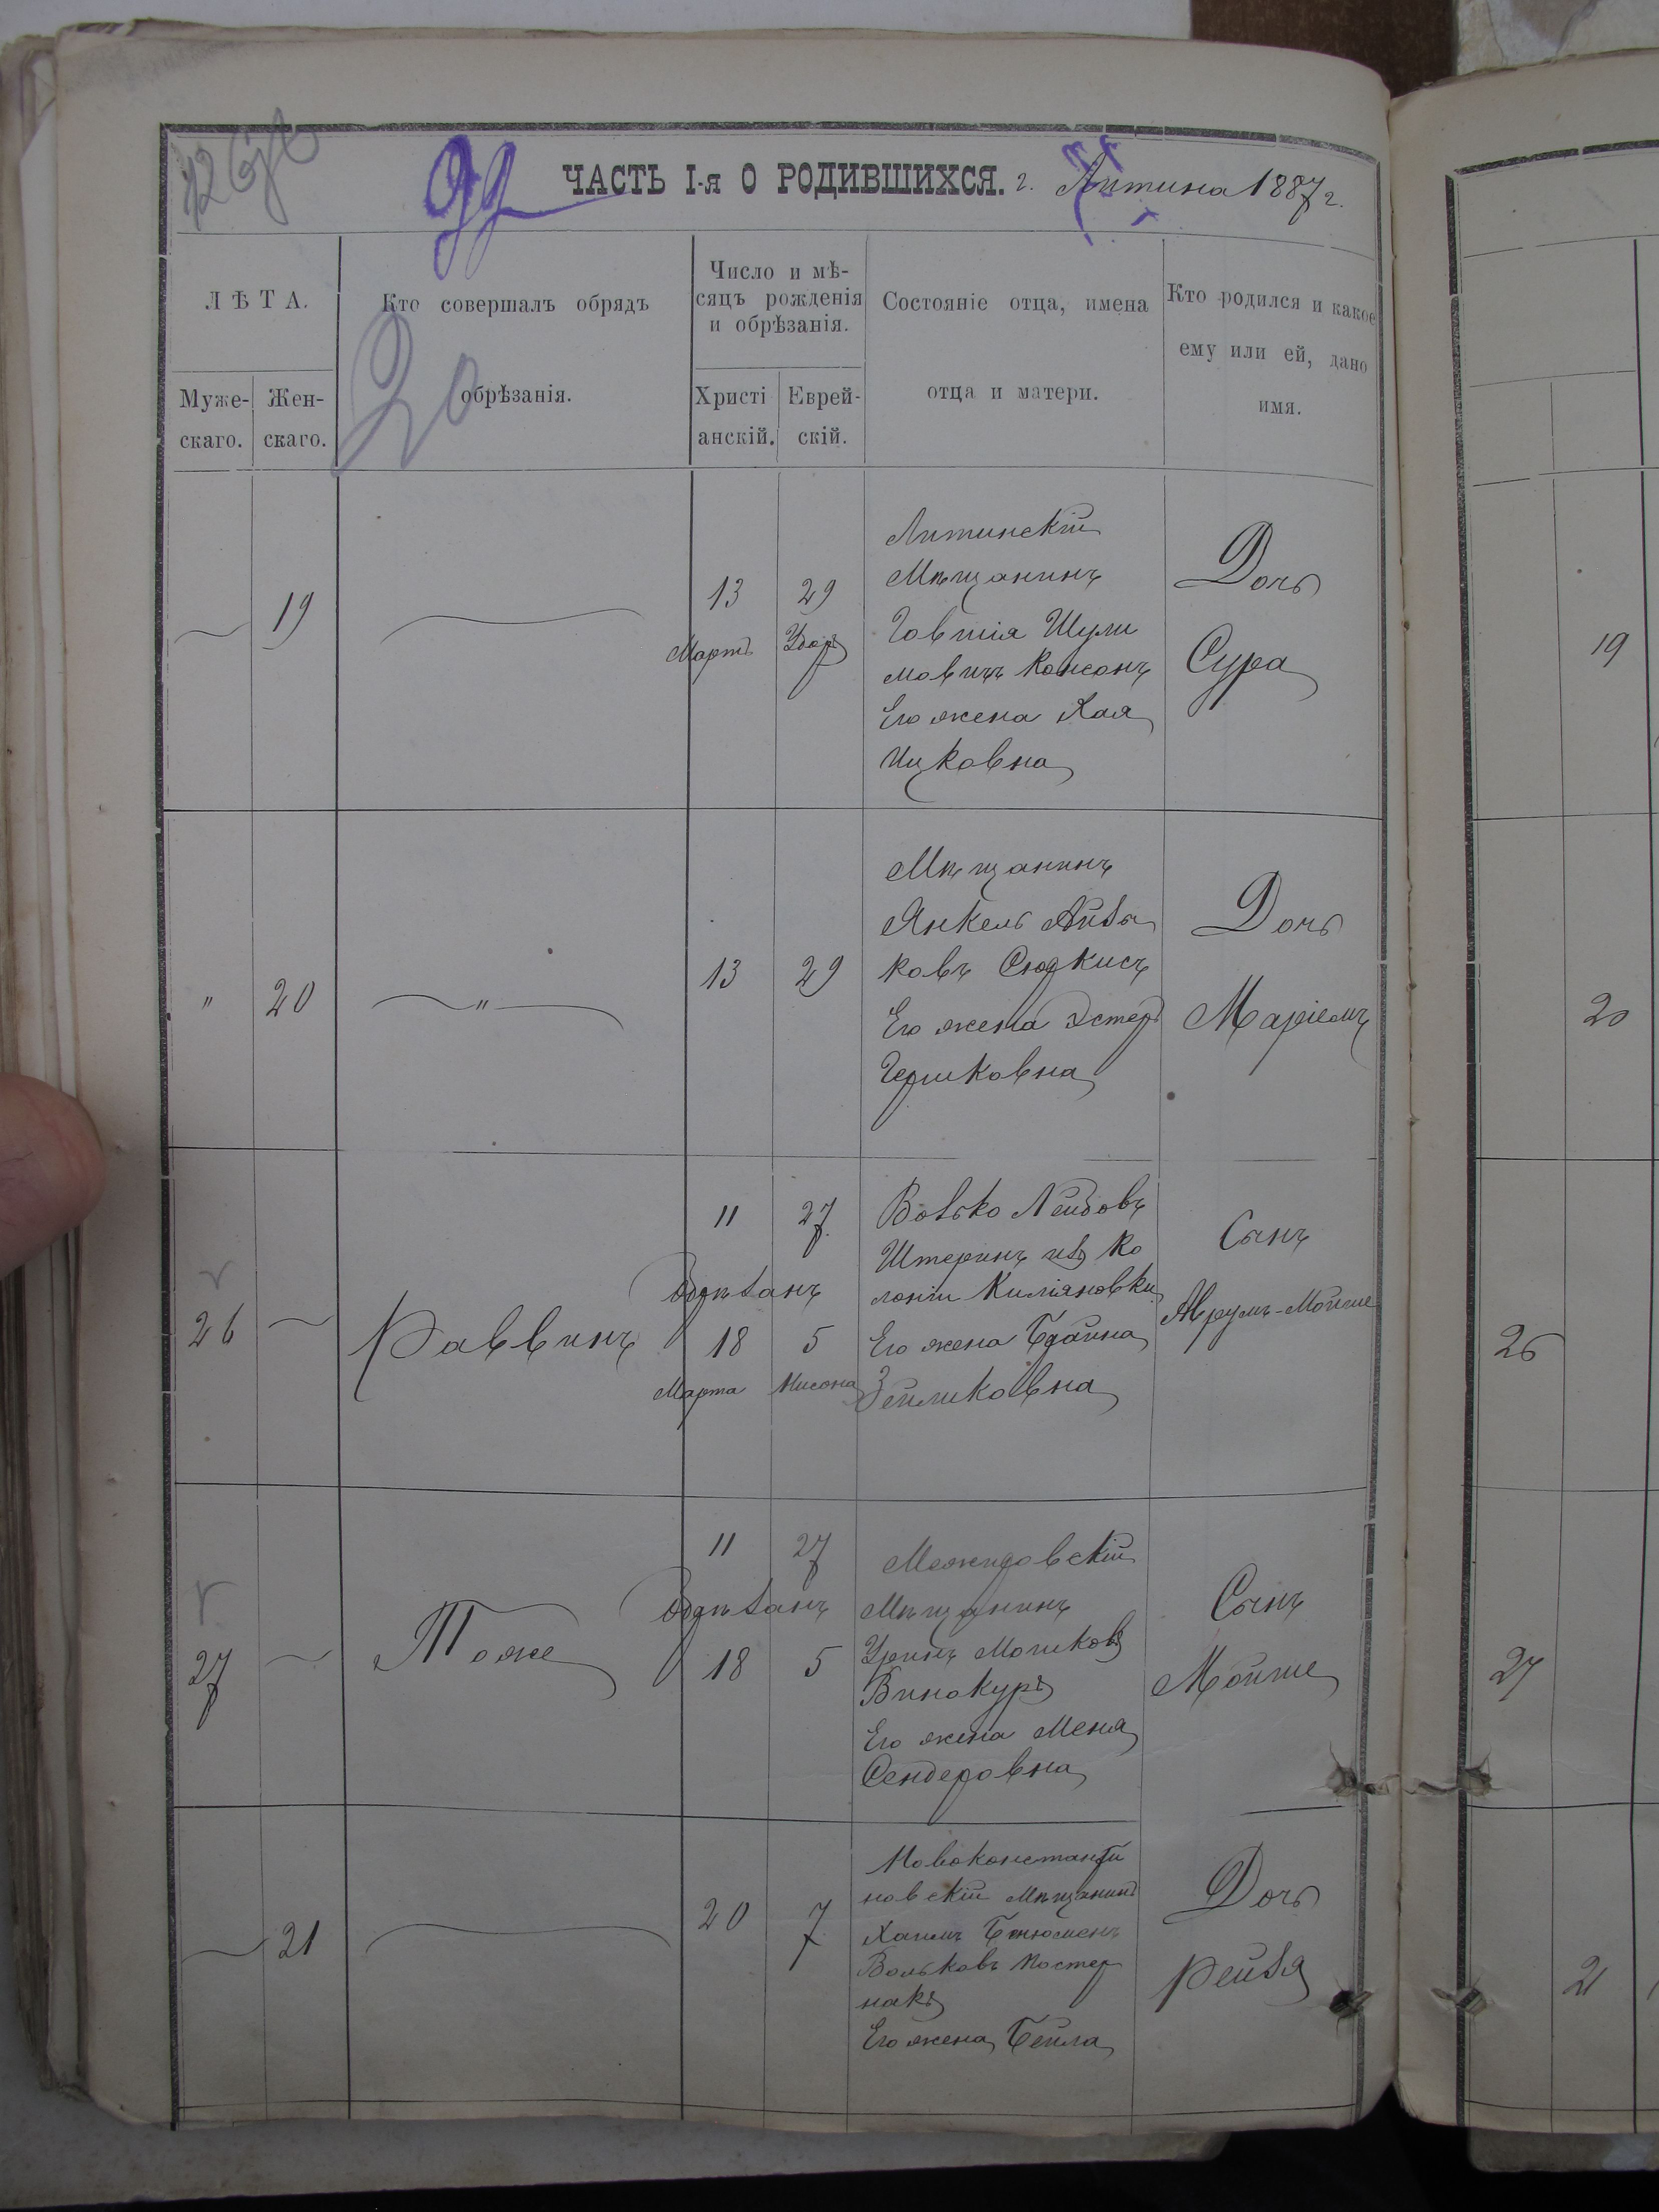 99
ЧАСТЬ I-я О РОДИВШИХСЯ. г. Литина 1887 г.
ЛѢТА.
Муже-
скаго.
Жен-
скаго.
Кто совершалъ обрядъ
обрѣзанія.
20
Число и мѣ-
сяцъ рожденія
и обрѣзанія.
Христі
анскій.
Еврей-
скій.
Состояніе отца, имена
отца и матери.
Кто родился и какое
ему или ей, дано
имя.
19
13
Мартъ
29
Литинскій
Мѣщанинъ
Шули
мовичъ
Его жена Хая
Ицковна
Дочь
Сура
19
"
20
"
13
29
Мѣщанинъ
Янкель Айзи
ковъ Сюдкисъ
Его жена Эстеръ
Гершковна
Дочь
Маріемъ
20
26
Раввинъ
11
27
Обрѣзанъ
18
5
Марта
Нисона
Волько Лейбовъ
Штеринъ изъ Ко
лоніи Киліяновки
Его жена
Зейликовна
Сынъ
Аврумъ-Мойше
26
27
Тоже
11
27
Обрѣзанъ
18
5
Межировскій
Мѣщанинъ
Уринъ Мошковъ
Винокуръ
Его жена Меня
Сендеровна
Сынъ
Мойше
27
21
20
7
Новоконстанти
новскій Мѣщанинъ
Хаимъ Бенюменъ
Вольковъ Постер
накъ
Его жена Бейла
Дочь
Рейзя
21